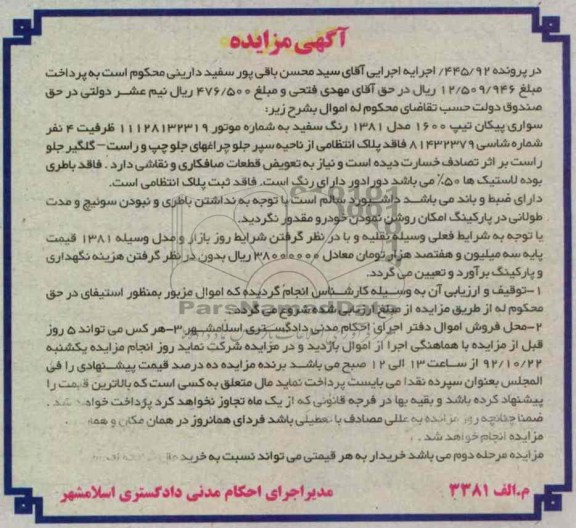 آگهی مزایده
در پرونده ۴۴۵/۹۲/ اجراییه اجرایی آقای سید محسن باقی پور سفید دارینی محکوم است به پرداخت
مبلغ ۱۲/۵۰۹/۹۴۶ ریال در حق آقای مهدی فتحی و مبلغ ۴۷۶/۵۰۰ ریال نیم عشر دولتی در حق
صندوق دولت حسب تقاضای محکوم له اموال بشرح زیر:
سواری پیکان تیپ ۱۶۰۰ مدل ۱۳۸۱ رنگ سفید به شماره موتور ۱۱۱۲۸۱۳۲۳۱۹ ظرفیت ۴ نفر
شماره شاسی ۸۱۴۳۲۳۷۹ فاقد پلاک انتظامی از ناحیه سپر جلو چراغهای جلو چپ و راست – گلگیر جلو
راست بر اثر تصادف خسارت دیده است و نیاز به تعویض قطعات صافکاری و نقاشی دارد . فاقد باطری
بوده لاستیک ها ۵۰٪ می باشد دور ادور دارای رنگ است. فاقد ثبت پلاک انتظامی است.
دارای ضبط و باند می باشد داشبورد سالم است با توجه به نداشتن باطری و نبودن سوئیچ و مدت
طولانی در پارکینگ امکان روشن نمودن خودرو مقدور نگردید.
با توجه به شرایط فعلی وسیله نقلیه و با در نظر گرفتن شرایط روز بازار و مدل وسیله ۱۳۸۱ قیمت
پایه سه میلیون و هفتصد هزار تومان معادل ۳۸۰۰۰۰۰۰ ریال بدون در نظر گرفتن هزینه نگهداری
و پارکینگ برآورد و تعیین می گردد.
۱–توقیف و ارزیابی آن به وسیله کارشناس انجام گردیده که اموال مزبور بمنظور استیفای در حق
محکوم له از طریق مزایده از مبلغ ارزیابی شده شروع می گردد.
۲–محل فروش اموال دفتر اجرای احکام مدنی دادگستری اسلامشهر ۳–هر کس می تواند ۵ روز
قبل از مزایده با هماهنگی اجرا از اموال بازدید و در مزایده شرکت نماید روز انجام مزایده یکشنبه
۹۲/۱۰/۲۲ از ساعت ۱۳ الی ۱۲ صبح می باشد برنده مزایده ده درصد قیمت پیشنهادی را فی
المجلس بعنوان سپرده نقدا می بایست پرداخت نماید مال متعلق به کسی است که بالاترین قیمت را
پیشنهاد کرده باشد و بقیه بها در فرجه قانونی که از یک ماه تجاوز نخواهد کرد پرداخت خواهد شد .
ضمنا چنانچه روز مزایده به عللی مصادف با تعطیلی باشد فردای همانروز در همان مکان و همان
مزایده انجام خواهد شد .
مزایده مرحله دوم می باشد خریدار به هر قیمتی می تواند نسبت به خرید
م.الف ۳۳۸۱
مدیر اجرای احکام مدنی دادگستری اسلامشهر
ParsNamadData